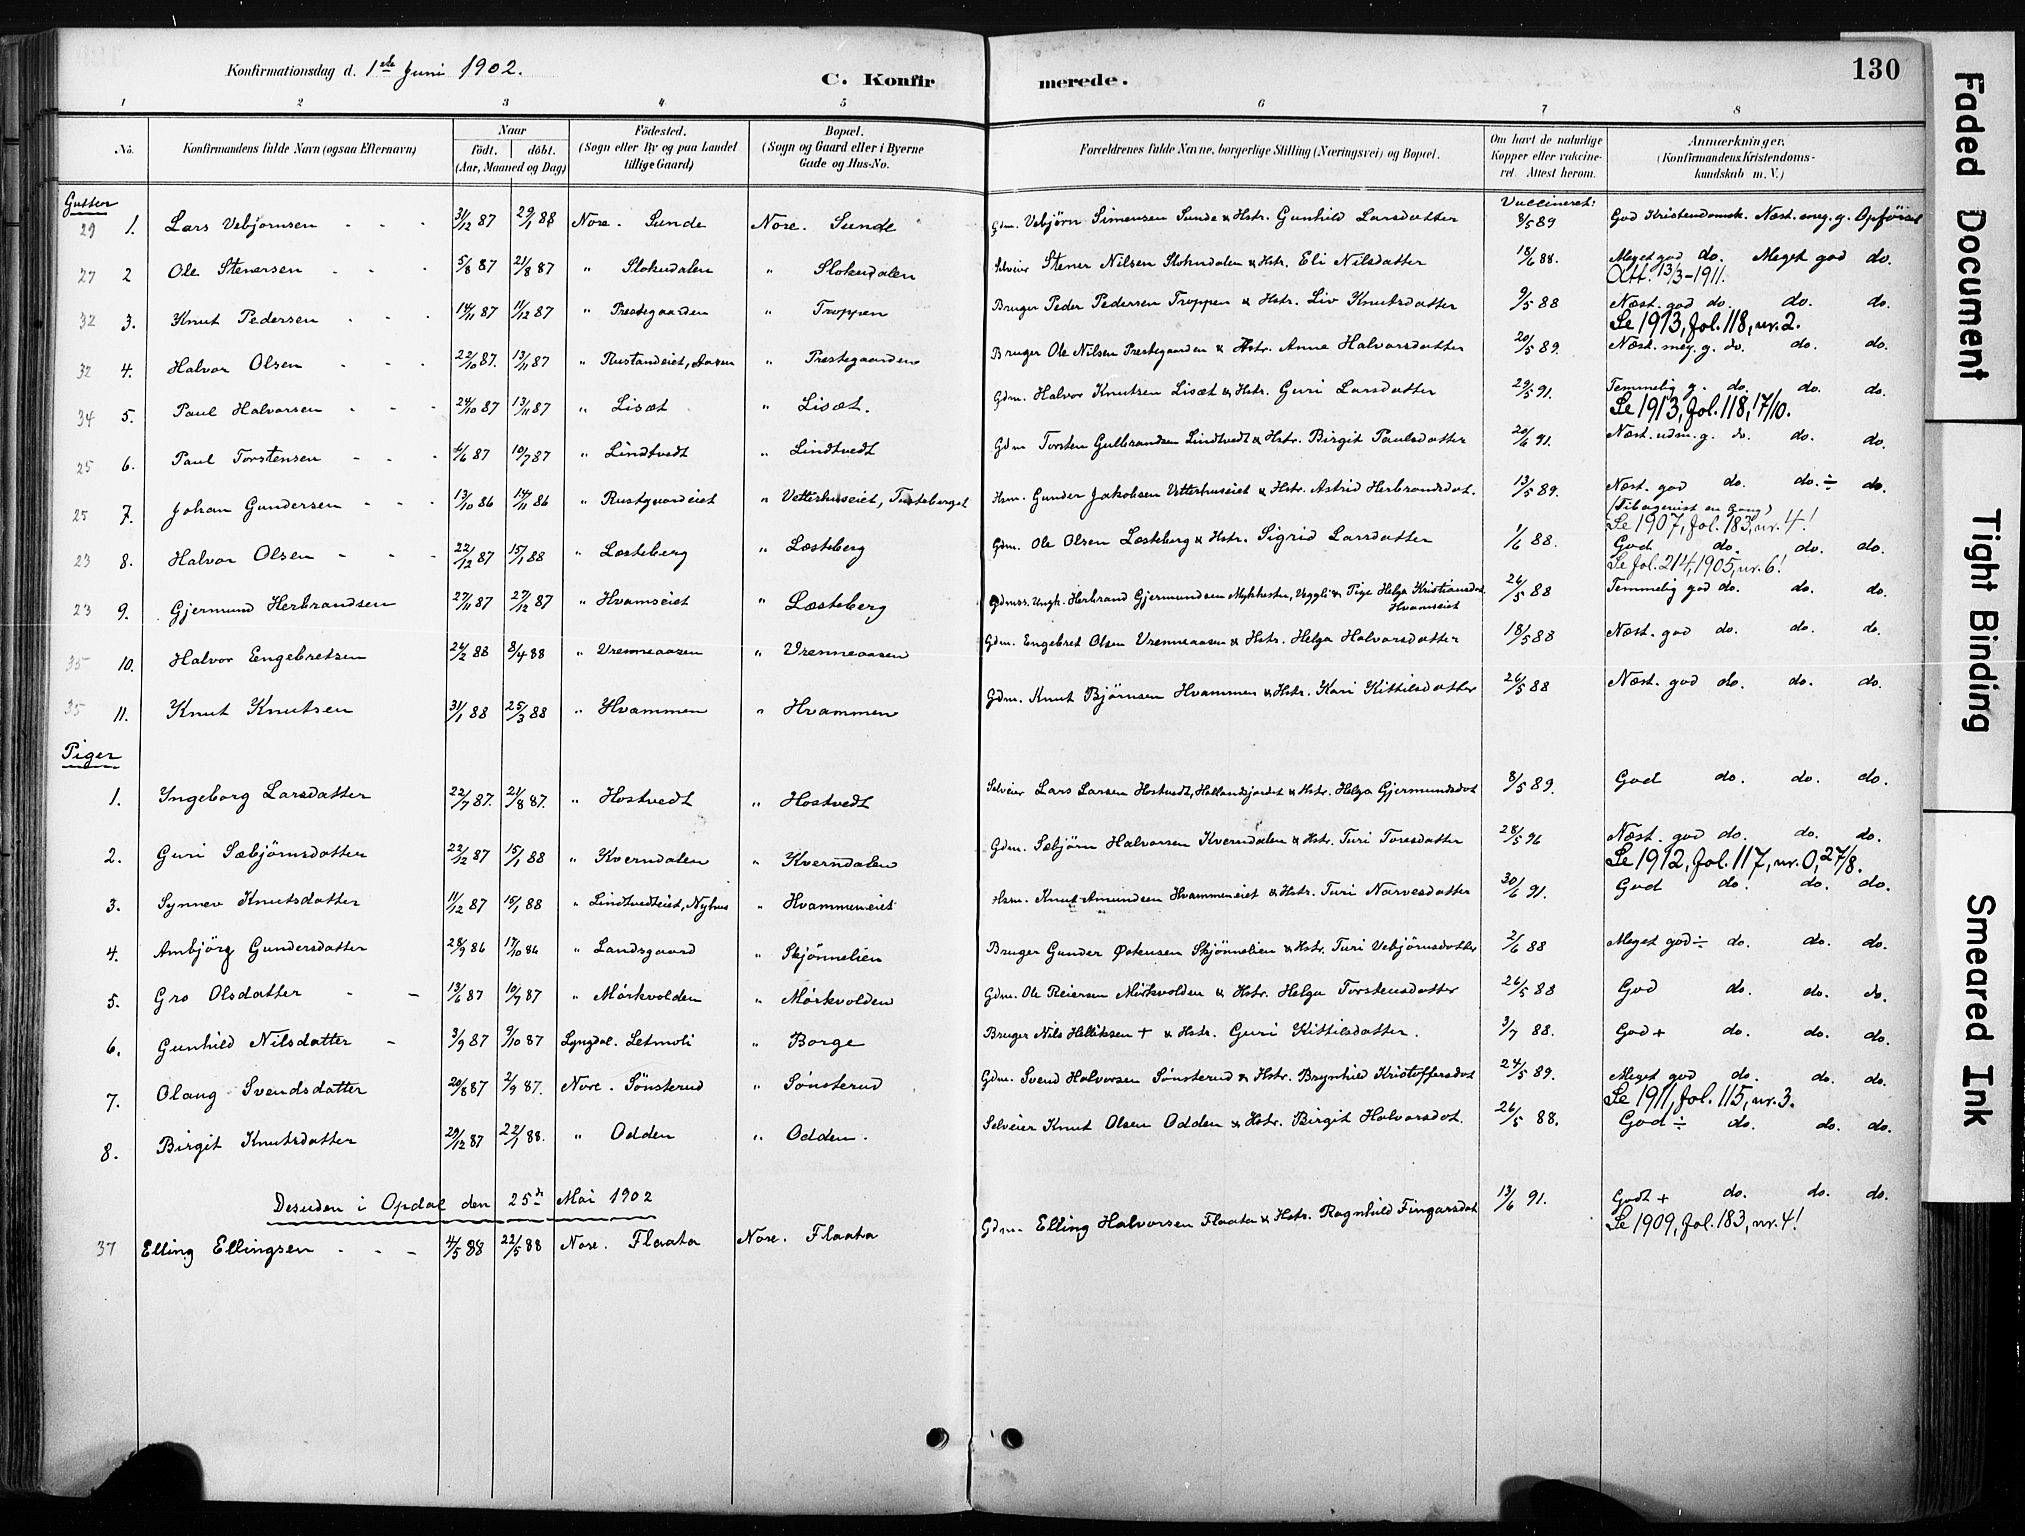 Konfirmationsdag d. 1ste Juni 1902.
C. Konfir
merede.
130
1 2 3 4 5 6 7 8
No. Konfirmandens fulde Navn (ogsaa Efternavn) Naar födt. döbt. (Aar, Maaned og Dag) Födested. (Sogn eller By og paa Landet tillige Gaard) Bopæl. (Sogn og Gaard eller i Byerne Gade og Hus-No. Forældrenes fulde Navne, borgerlige Stilling (Næringsvei) og Bopæl. Om havt de naturlige Kopper eller vakcineret. Attest herom. Anmærkninger. (Konfirmandens Kristendomskundskab m. V.)
Gutter
Vaccineret:
29 1. Lars Vebjørnsen - - - 31/12 87 29/1 88 Nore. Sunde Nore. Sunde Gdm. Vebjørn Simensen Sunde & Hstr. Gunhild Larsdatter 8/5 89 God Kristendomsk. Næst. meg. g. Opførsel
27 2 Ole Stenersen - - 5/8 87 21/8 87 " Slokudalen " Slokudalen Selveier Stener Nilsen Slokudalen & Hstr. Eli Nilsdatter 18/6 88. Meget god do. Meget god do.
Att. 13/3-1911.
32 3. Knut Pedersen - - - 14/11 87 11/12 87 " Prestegaarden " Troppen Bruger Peder Pedersen Troppen & Hstr. Liv Knutsdatter 9/5 88 Næst. god do. do. do.
Se 1913, fol. 118, nr. 2.
32 4. Halvor Olsen - - - 22/10 87. 13/11 87 " Rustandeiet, Aasen " Prestegaarden Bruger Ole Nilsen Prestegaarden & Hstr. Anne Halvorsdatter 20/5 89. Næst. meg. g. do. do. do.
34 5. Paul Halvorsen - - - 24/10 87 13/11 87 " Lisæt " Lisæt. Gdm. Halvor Knutsen Lisæt & Hstr. Guri Larsdatter 29/5 91. Temmelig g. do. do. do.
Se 1913, fol. 118, 17/10.
25 6. Paul Torstensen - - - 6/6 87 10/7 87 " Lindtvedt " Lindtvedt Gdm Torsten Gulbrandsen Lindtvedt & Hstr. Birgit Paulsdatter 20/6 91. Næst. udm. g. do. do. do.
25 7. Johan Gundersen - - - 13/10 86 14/11 86 " Rustgaardeiet " Vetterhuseiet, Tusteberget Hsm. Gunder Jakobsen Vetterhuseiet & Hstr. Astrid Herbrandsdat. 13/5 89. Næst. god do. do. ÷ do.
(Tilbagevist en Gang)
Se 1907, fol. 183, nr. 4!
23 8. Halvor Olsen - - - 22/12 87 15/1 88 " Læsteberg " Læsteberg Gdm. Ole Olsen Læsteberg & Hstr. Sigrid Larsdatter 1/6 88. God do. do. do.
Se fol. 214, 1905, nr. 6!
23 9. Gjermund Herbrandsen 27/11 87 27/12 87 " Hvamseiet " Læsteberg Gdmss. Ungk. Herbrand Gjermundsen Mykkestu, Veggli & Pige Helga Kristiansdat. Hvamseiet 26/5 88 Temmelig god do. do. do.
35 10. Halvor Engebretsen 24/2 88 8/4 88 " Vrenneaasen " Vrenneaasen Gdm. Engebret Olsen Vrenneaasen & Hstr. Helga Halvorsdatter 18/5 88 Næst. god do. do. do.
35 11. Knut Knutsen 31/1 88 25/3 88 " Hvammen " Hvammen Gdm. Knut Bjørnsen Hvammen & Hstr. Kari Kittilsdatter 26/5 88 Næst. god do. do. do.
Piger
1. Ingeborg Larsdatter 22/7 87. 21/8 87. " Hostvedt " Hostvedt Selveier Lars Larsen Hostvedt, Hallandsjordet & Hstr. Helga Gjermundsdat 8/5 89. God do. do. do.
2. Guri Sæbjørnsdatter 22/12 87 15/1 88 " Kverndalen " Kverndalen Gdm. Sæbjørn Halvorsen Kverndalen & Hstr. Turi Toresdatter 28/5 96 Næst. god do. do. do.
Se 1912, fol. 117, nr. 0, 27/8.
3. Synnev Knutsdatter 11/12 87 15/1 88 " Lindtvedteiet, Nyhus " Hvammeneiet Hsm. Knut Amundsen Hvammeneiet & Hstr. Turi Narvesdatter 30/6 91. God do. do. do.
4. Ambjørg Gundersdatter 28/9 86 17/10 86 " Landsgaard " Skjønnelien Bruger Gunder Østensen Skjønnelien & Hstr. Turi Vebjørnsdatter 2/6 88 Meget god ÷ do. do. do.
5. Gro Olsdatter - - 13/6 87 10/7 87 " Mørkvolden " Mørkvolden Gdm. Ole Reiersen Mørkvolden & Hstr. Helga Torstensdatter 26/5 88 God do. do. do.
6. Gunhild Nilsdatter - 3/9 87 9/10 87 Lyngdal. Letmoli " Borge Bruger Nils Helliksen + & Hstr. Guri Kittilsdatter. 3/7 88. God + do. do. do.
7. Olaug Svendsdatter 20/8 87 2/9 87. Nore. Sønsterud " Sønsterud Gdm. Svend Halvorsen Sønsterud & Hstr. Brynhild Kristoffersdat 24/5 89. Meget god do. do. do.
Se 1911, fol. 115, nr. 3.
8. Birgit Knutsdatter 29/12 87 22/1 88. " Odden " Odden. Selveier Knut Olsen Odden & Hstr. Birgit Halvorsdat. 26/5 88. God ÷ do. do. do.
Desuden i Opdal den 25de Mai 1902
37 Elling Ellingsen - - - 4/5 88 22/5 88 Nore. Flaata Nore. Flaata Gdm. Elling Halvorsen Flaata & Hstr. Ragnhild Fingarsdat 13/6 91. Godt + do. do. do.
Se 1909, fol. 183, nr. 4!
Faded Document
Tight Binding
Smeared Ink